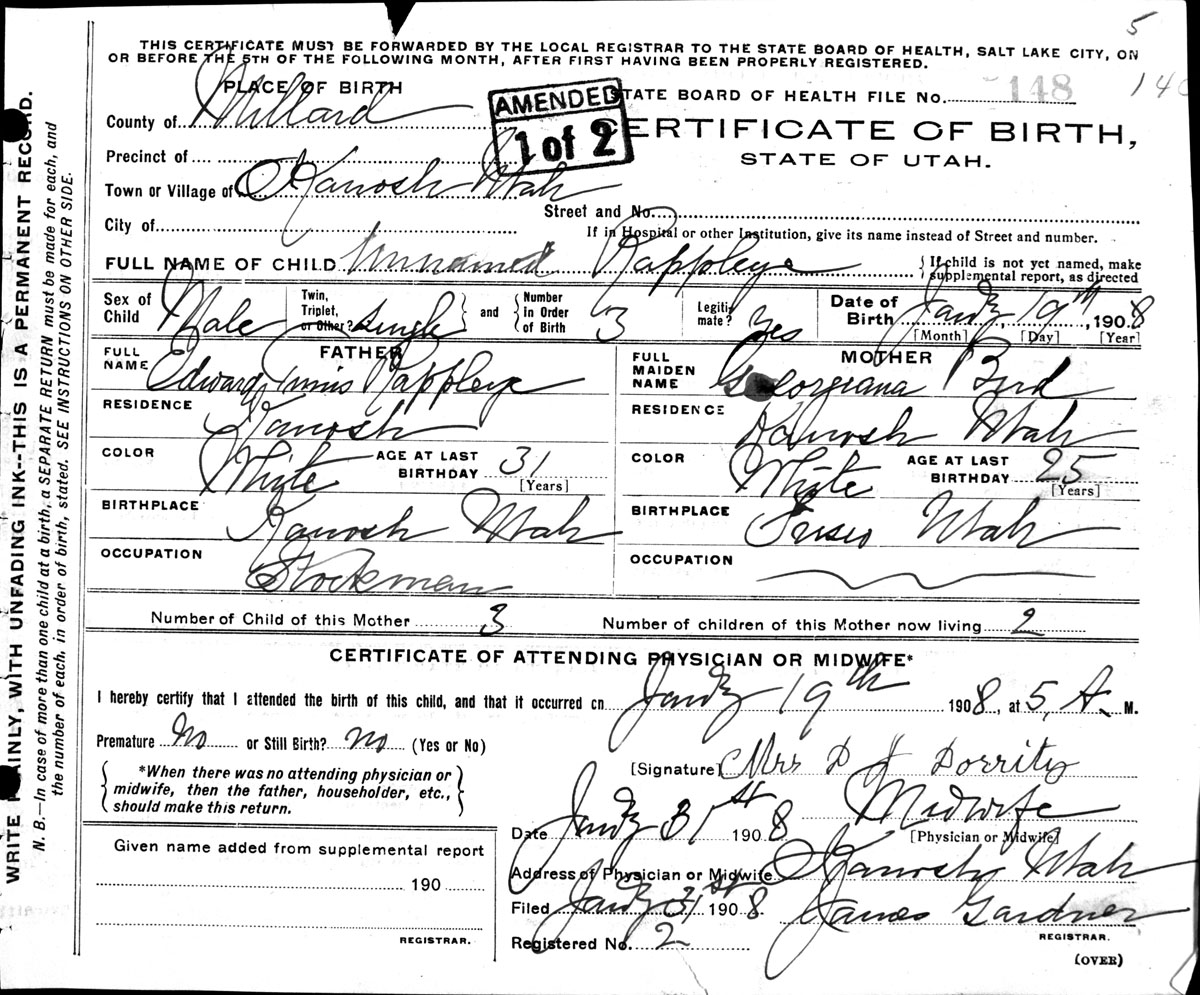 5
THIS CERTIFICATE MUST BE FORWARDED BY THE LOCAL REGISTRAR TO THE STATE BOARD OF HEALTH, SALT LAKE CITY, ON
OR BEFORE THE 5TH OF THE FOLLOWING MONTH, AFTER FIRST HAVING BEEN PROPERLY REGISTERED.
PLACE OF BIRTH
STATE BOARD OF HEALTH FILE No. 148
AMENDED
1 of 2
County of Millard
CERTIFICATE OF BIRTH,
STATE OF UTAH.
Precinct of
Town or Village of Kanosh Utah
Street and No.
City of
If in Hospital or other Institution, give its name instead of Street and number.
FULL NAME OF CHILD Unnamed Rappleye
{If child is not yet named, make
supplemental report, as directed
Sex of Child Male
Twin, Triplet, or Other? Single } and { Number In Order of Birth 3
Legitimate? Yes
Date of Birth Jany 19th, 1908
[Month] [Day] [Year]
FATHER
FULL NAME Edward Rappleye
RESIDENCE Kanosh
COLOR White AGE AT LAST BIRTHDAY 31
[Years]
BIRTHPLACE Kanosh Utah
OCCUPATION Stockman
MOTHER
FULL MAIDEN NAME Georgiana Bird
RESIDENCE Kanosh Utah
COLOR White AGE AT LAST BIRTHDAY 25
[Years]
BIRTHPLACE Frisco Utah
OCCUPATION
Number of Child of this Mother 3 Number of children of this Mother now living 2
CERTIFICATE OF ATTENDING PHYSICIAN OR MIDWIFE*
I hereby certify that I attended the birth of this child, and that it occurred on Jany 19th 1908, at 5, A. M.
Premature No or Still Birth? no (Yes or No)
{ *When there was no attending physician or
midwife, then the father, householder, etc.,
should make this return. }
[Signature] Mrs D J Dorrity
Midwife
[Physician or Midwife]
Date Jany 31st 1908
Address of Physician or Midwife Kanosh, Utah
Filed Jany 31st 1908. James Gardner
REGISTRAR.
Registered No. 2
(OVER)
Given name added from supplemental report
190
REGISTRAR.
WRITE PLAINLY, WITH UNFADING INK--THIS IS A PERMANENT RECORD.
N. B.—In case of more than one child at a birth, a SEPARATE RETURN must be made for each, and
the number of each, in order of birth, stated. SEE INSTRUCTIONS ON OTHER SIDE.